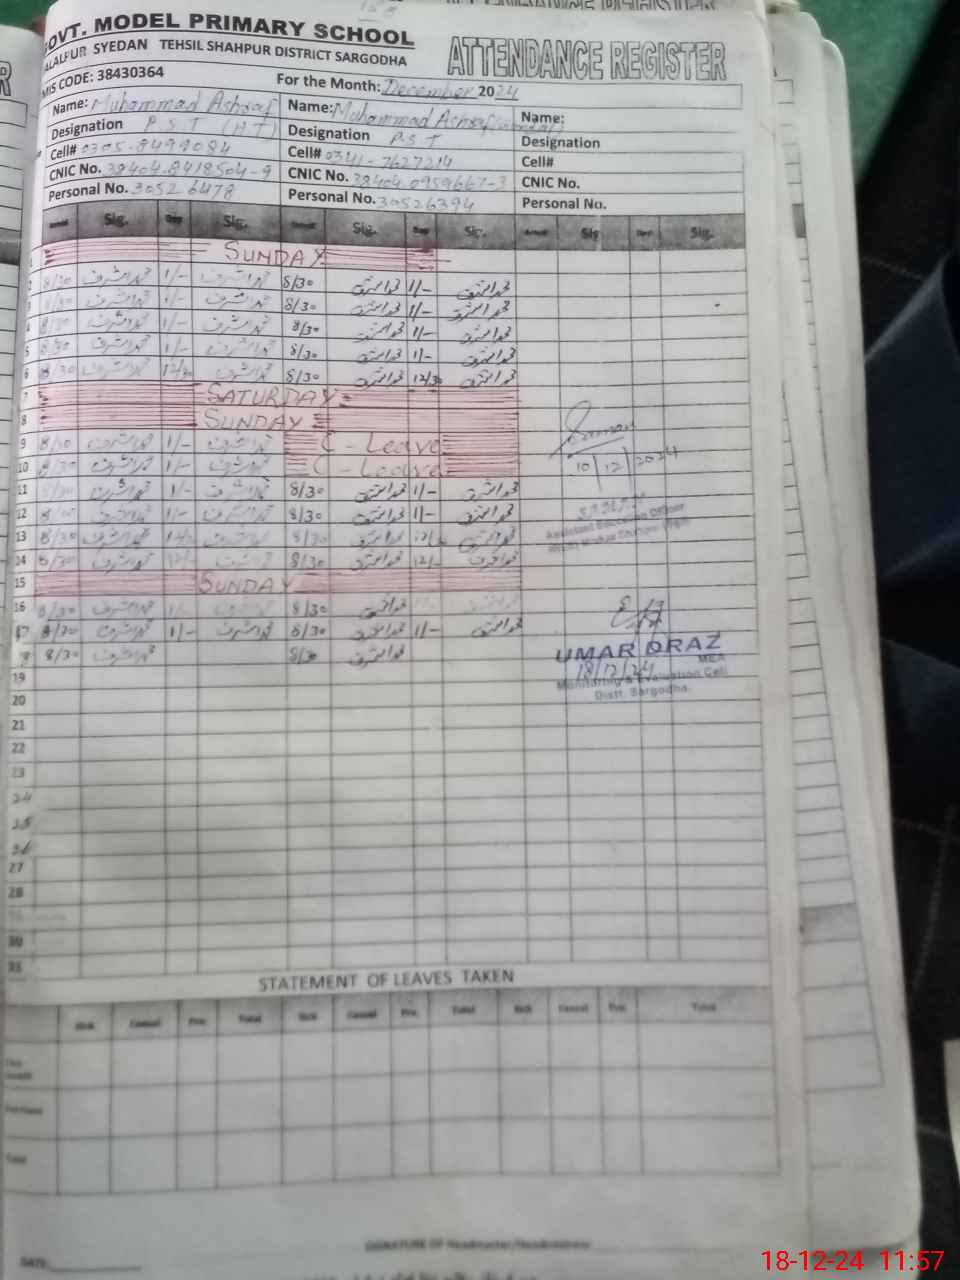 GOVT. MODEL PRIMARY SCHOOL
JALALPUR SYEDAN TEHSIL SHAHPUR DISTRICT SARGODHA
ATTENDANCE REGISTER
EMIS CODE: 38430364 For the Month: December 2024
Name: Muhammad Ashraf Name: Muhammad Ashraf Name:
Designation P.S.T (H.T) Designation P.S.T Designation
Cell# 0305-8499084 Cell# 0341-7627214 Cell#
CNIC No. 38404-8418504-9 CNIC No. 38404-0959667-3 CNIC No.
Personal No. 30526478 Personal No. 30526394 Personal No.
Sig. Sig. Sig. Sig. Sig. Sig.
1 SUNDAY
2 8/30 محمد اشرف 1/- محمد اشرف 8/30 محمد اشرف 1/- محمد اشرف
3 8/30 محمد اشرف 1/- محمد اشرف 8/30 محمد اشرف 1/- محمد اشرف
4 8/30 محمد اشرف 1/- محمد اشرف 8/30 محمد اشرف 1/- محمد اشرف
5 8/30 محمد اشرف 1/- محمد اشرف 8/30 محمد اشرف 1/- محمد اشرف
6 8/30 محمد اشرف 12/30 محمد اشرف 8/30 محمد اشرف 12/30 محمد اشرف
7 SATURDAY
8 SUNDAY
9 8/30 محمد اشرف 1/- محمد اشرف C-Leave
10 8/30 محمد اشرف 1/- محمد اشرف C-Leave
10/12/2024
11 8/30 محمد اشرف 1/- محمد اشرف 8/30 محمد اشرف 1/- محمد اشرف
12 8/30 محمد اشرف 1/- محمد اشرف 8/30 محمد اشرف 1/- محمد اشرف
Assistant Education Officer
13 8/30 محمد اشرف محمد اشرف 8/30 محمد اشرف محمد اشرف
14 8/30 محمد اشرف 12/- محمد اشرف 8/30 محمد اشرف 12/- محمد اشرف
15 SUNDAY
16 8/30 محمد اشرف 1/- 8/30 محمد اشرف
17 8/30 محمد اشرف 1/- محمد اشرف 8/30 محمد اشرف 1/- محمد اشرف
18 8/30 محمد اشرف 8/30 محمد اشرف
UMAR DRAZ
MEA
18/12/24
Monitoring & Evaluation Cell
Distt. Sargodha
19
20
21
22
23
24
25
26
27
28
30
31
STATEMENT OF LEAVES TAKEN
Sick Casual Prv. Total Sick Casual Prv. Total Sick Casual Prv. Total
Total
SIGNATURE OF Headmaster/Headmistress
DATE:
18-12-24 11:57